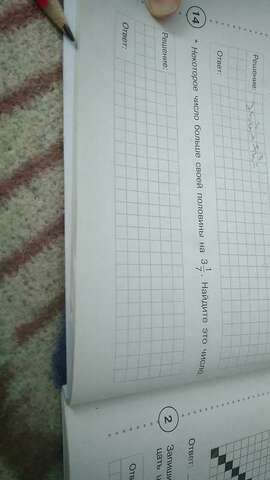 Решение:
Ответ:
14
* Некоторое число больше своей половины на 3 1/7. Найдите это число.
Решение:
Ответ:
Ответ:
2